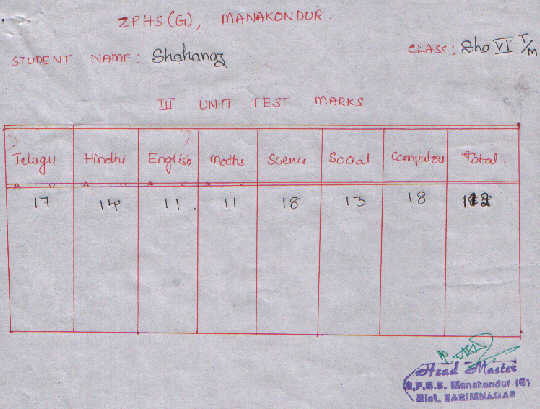 ZPHS(G), MANAKONDUR.
STUDENT NAME: Shahanaz CLASS: VI T/M
III UNIT TEST MARKS
Telugu Hindhi English Maths Science Social Computer Total
17 14 11 11 18 13 18
Head Master
Z.P.S.S. Manakondur (G)
Dist. KARIMNAGAR